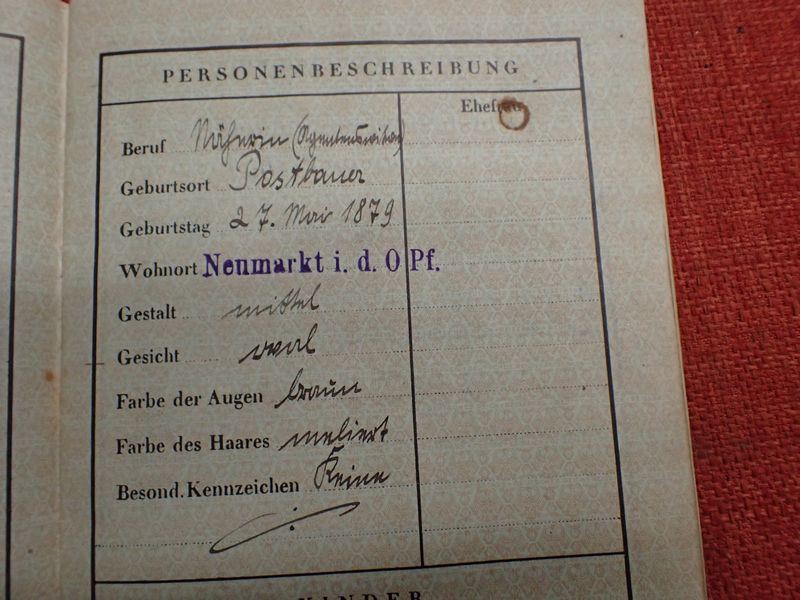 PERSONENBESCHREIBUNG
Ehefrau
Beruf Näherin (Agentenswitwe)
Geburtsort Postbauer
Geburtstag 27. Mai 1879
Wohnort Neumarkt i. d. O Pf.
Gestalt mittel
Gesicht oval
Farbe der Augen braun
Farbe des Haares meliert
Besond. Kennzeichen Keine
KINDER